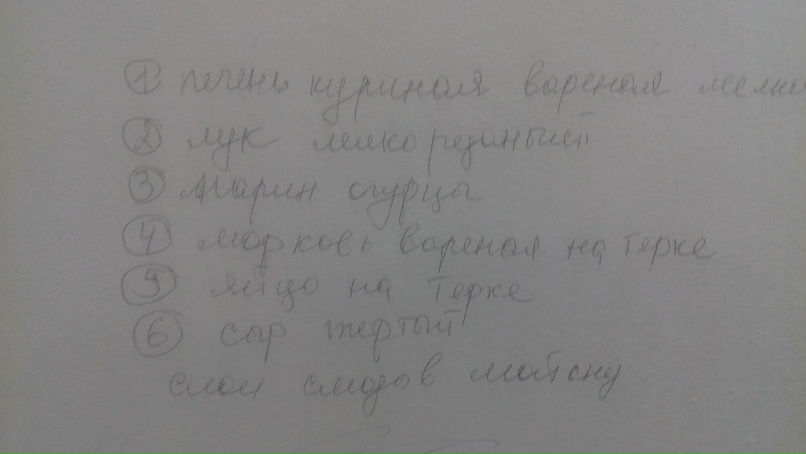 ① печень куриная вареная мелко
② лук мелко резаный
③ Марин огурцы
④ морковь вареная на терке
⑤ яйцо на терке
⑥ сыр тертый
слои смазыв майону